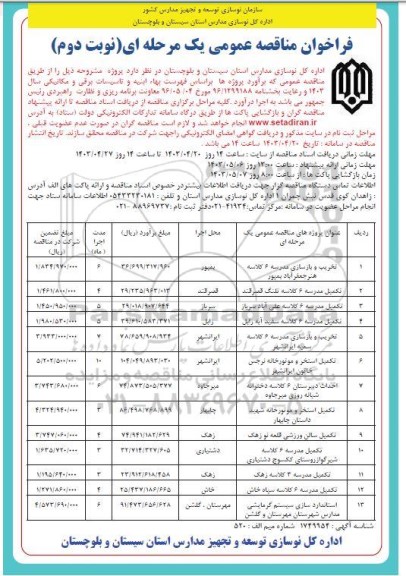 سازمان نوسازی توسعه و تجهیز مدارس کشور
اداره کل نوسازی مدارس استان سیستان و بلوچستان
فراخوان مناقصه عمومی یک مرحله ای(نوبت دوم)
اداره کل نوسازی مدارس استان سیستان و بلوچستان در نظر دارد پروژه مشروحه ذیل را از طریق
مناقصه عمومی که برآورد پروژه ها براساس فهرست بها، ابنیه و تاسیسات برقی و مکانیکی سال
۱۴۰۳ و رعایت بخشنامه ۹۶/۱۲۹۹۱۸۸ مورخ ۹۶/۰۵/۰۴ معاونت برنامه ریزی و نظارت راهبردی رئیس
جمهور می باشد به اجرا درآورد. کلیه مراحل برگزاری مناقصه از دریافت اسناد مناقصه تا ارائه پیشنهاد
مناقصه گران و بازگشایی پاکت ها از طریق درگاه سامانه تدارکات الکترونیکی دولت (ستاد) به آدرس
www.setadiran.ir انجام خواهد شد و لازم است مناقصه گران در صورت عدم عضویت قبلی ،
مراحل ثبت نام در سایت مذکور و دریافت گواهی امضای الکترونیکی راجهت شرکت در مناقصه محقق سازند. تاریخ انتشار
مناقصه در سامانه : تاریخ ۱۴۰۳/۰۴/۲۰ ساعت ۱۴ می باشد .
مهلت زمانی دریافت اسناد مناقصه از سایت : ساعت ۱۴ روز ۱۴۰۳/۰۴/۲۰ تا ساعت ۱۴ روز ۱۴۰۳/۰۴/۲۷
مهلت زمانی ارائه پیشنهاد : ساعت ۱۳:۰۰ روز ۱۴۰۳/۰۵/۰۶
زمان بازگشایی پاکت ها : از ساعت ۸:۰۰ روز ۱۴۰۳/۰۵/۰۷
اطلاعات تماس دستگاه مناقصه گزار جهت دریافت اطلاعات بیشتر در خصوص اسناد مناقصه و ارائه پاکت های الف آدرس
: زاهدان کوی قدس نبش چمران ۱ اداره کل نوسازی مدارس استان و تلفن : ۰۵۴۳۳۲۳۰۱۸۱ اطلاعات سامانه ستاد جهت
انجام مراحل عضویت در سامانه :مرکز تماس:۴۱۹۳۴-۰۲۱ دفتر ثبت نام :۸۸۹۶۹۷۳۷-۰۲۱
ردیف عنوان پروژه های مناقصه عمومی یک مرحله ای محل اجرا مبلغ برآورد (ریال) مدت اجرا (ماه) مبلغ تضمین شرکت در مناقصه (ریال)
۱ تخریب و بازسازی مدرسه ۶ کلاسه هنرجعفرآباد بمپور بمپور ۳۶/۶۹۹/۳۱۷/۹۶۰ ۶ ۱/۸۳۴/۹۷۰/۰۰۰
۲ تکمیل مدرسه ۶ کلاسه تلنگ قصرقند قصرقند ۲۹/۲۳۵/۹۶۳/۰۱۳ ۴ ۱/۴۶۱/۸۰۰/۰۰۰
۳ تکمیل مدرسه ۶ کلاسه علی آباد سرباز سرباز ۲۹/۰۱۸/۹۰۷/۶۴۴ ۵ ۱/۴۵۰/۹۵۰/۰۰۰
۴ تکمیل مدرسه ۶ کلاسه سفید آبه زابل زابل ۳۹/۶۱۰/۵۸۳/۳۷۱ ۵ ۱/۹۸۰/۵۳۰/۰۰۰
۵ تخریب و بازسازی مدرسه ۶ کلاسه سمیه ایرانشهر ایرانشهر ۷۸/۶۵۹/۹۰۸/۹۳۴ ۶ ۳/۹۳۳/۰۰۰/۰۰۰
۶ تکمیل استخر و موتورخانه نرجس خاتون ایرانشهر ایرانشهر ۱۰۴/۰۴۹/۸۹۳/۰۳۰ ۱۰ ۵/۲۰۲/۵۰۰/۰۰۰
۷ احداث دبیرستان ۶ کلاسه دخترانه شبانه روزی میرجاوه میرجاوه ۷۴/۸۷۳/۵۰۵/۳۷۷ ۶ ۳/۷۴۳/۶۸۰/۰۰۰
۸ تکمیل استخر و موتورخانه شهید داستان چابهار چابهار ۸۶/۴۹۸/۷۶۸/۸۹۹ ۳ ۴/۳۲۴/۹۴۰/۰۰۰
۹ تکمیل سالن ورزشی قلعه نو زهک زهک ۷۴/۹۴۱/۱۸۲/۶۲۹ ۴ ۳/۷۴۷/۰۶۰/۰۰۰
۱۰ تکمیل مدرسه ۶ کلاسه شیرگوازروستای کلسوج دشتیاری دشتیاری ۳۲/۷۱۴/۳۲۷/۶۰۵ ۴ ۱/۶۳۵/۷۲۰/۰۰۰
۱۱ تکمیل مدرسه ۳ کلاسه زهک زهک ۲۳/۹۱۲/۶۱۸/۴۵۸ ۳ ۱/۱۹۵/۶۴۰/۰۰۰
۱۲ تکمیل مدرسه ۶ کلاسه سپاه خاش خاش ۲۵/۴۳۷/۱۸۶/۶۶۵ ۴ ۱/۲۷۱/۸۶۰/۰۰۰
۱۳ استاندارد سازی سیستم گرمایشی مدارس شهرستان مهرستان و گلشن مهرستان ، گلشن ۹۱/۴۷۳/۶۵۶/۶۲۸ ۶ ۴/۵۷۳/۶۹۰/۰۰۰
شناسه آگهی : ۱۷۴۹۹۵۴ شماره میم الف : ۵۲۰
اداره کل نوسازی توسعه و تجهیز مدارس استان سیستان و بلوچستان